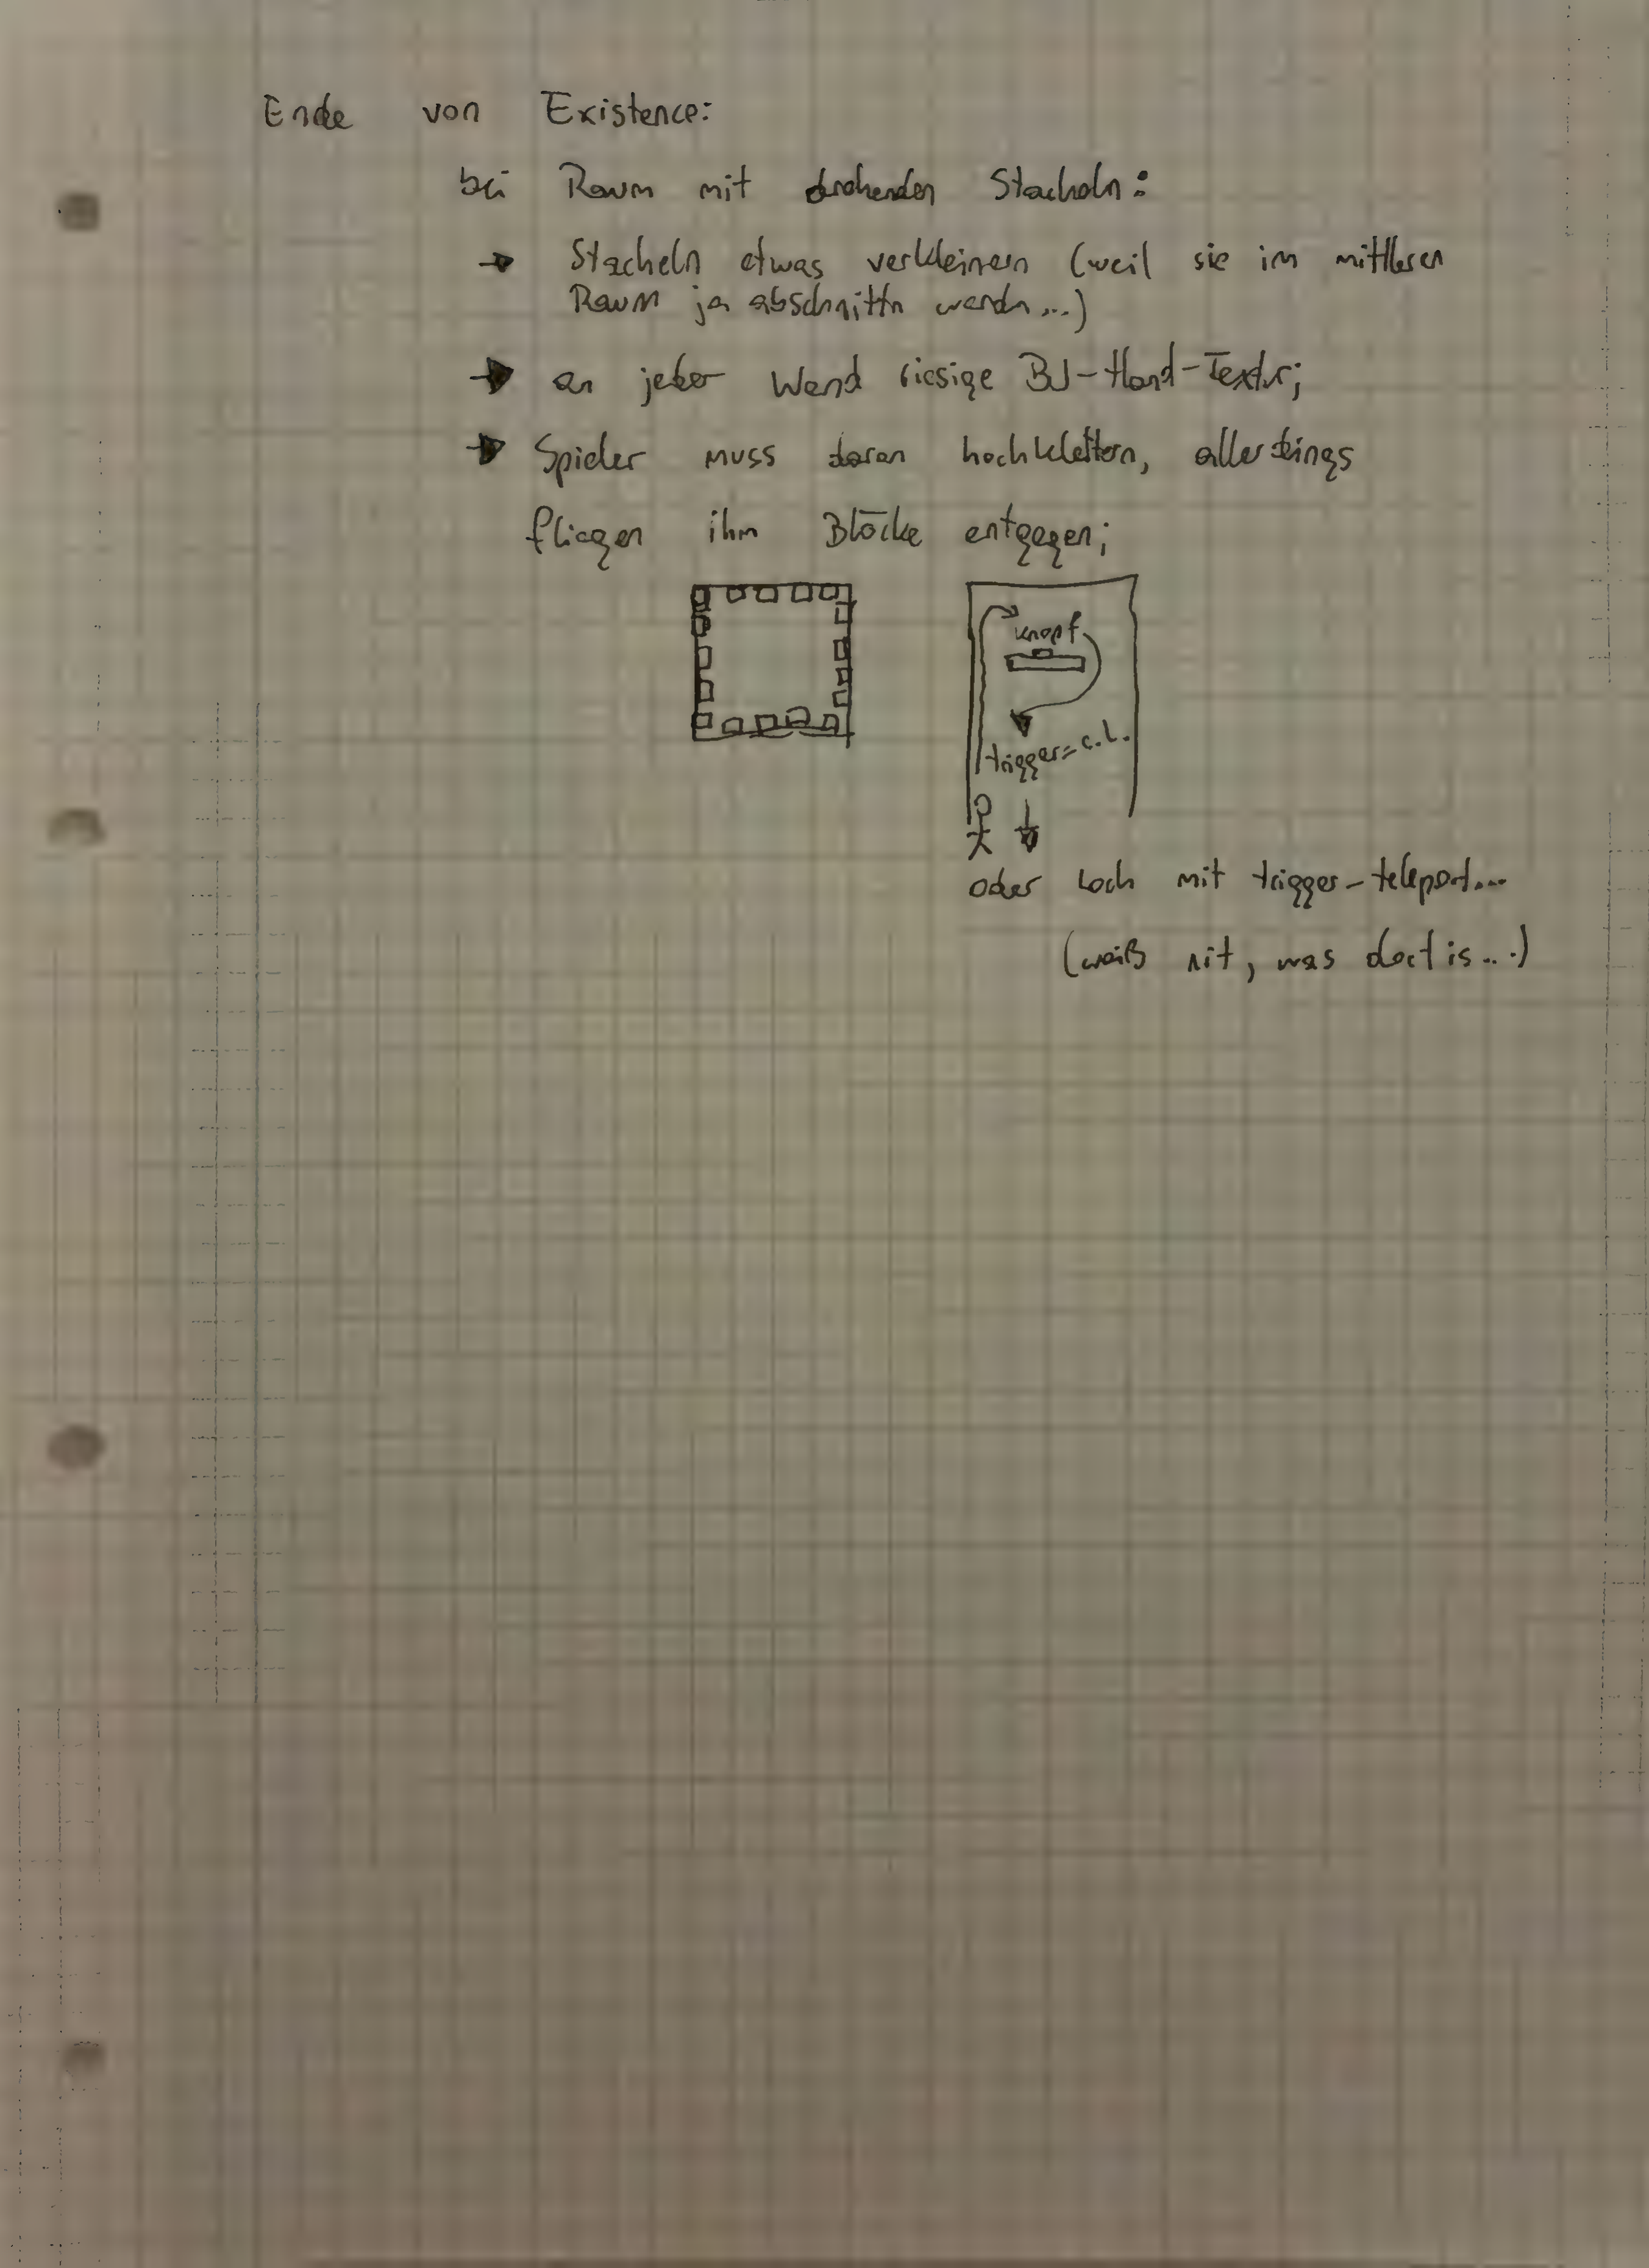 Ende von Existence:
bei Raum mit drehenden Stacheln:
→ Stacheln etwas verkleinern (weil sie im mittleren
Raum ja abschnittn werdn...)
→ an jeder Wand riesige BJ-Hand-Textur;
→ Spieler muss daran hochklettern, allerdings
fliegen ihm Blöcke entgegen;
Knopf
trigger=c.l.
oder Loch mit trigger-teleport...
(weiß nit, was dort is...)